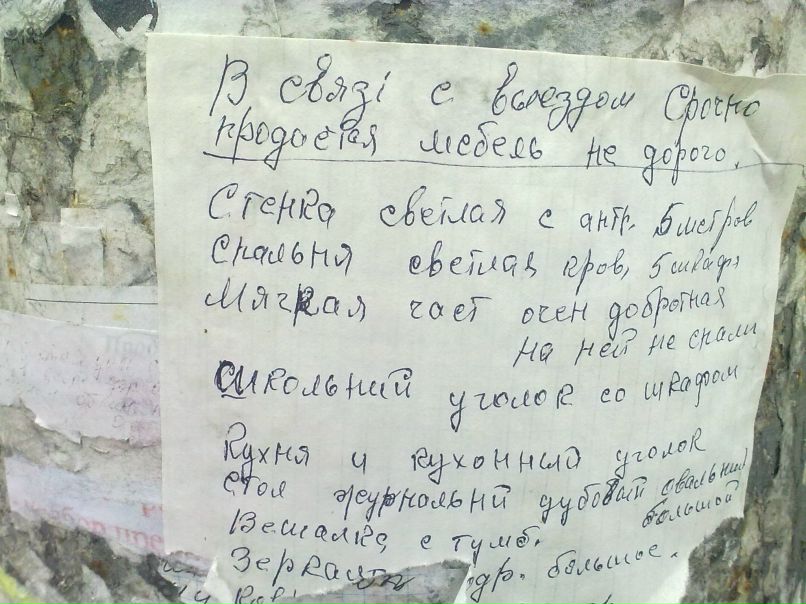 В связі с выездом Срочно
продается мебель не дорого.
Стенка светлая с антр. 5 метров
Спальня светлая, кров, 5 шкафя
Мягкая част очен добротная
на ней не спали
Школьний уголок со шкафом
Кухня и кухонный уголок
Стол журнальнй дубовый овальний
большой
Вешалка с тумб.
Зеркал др. большое.